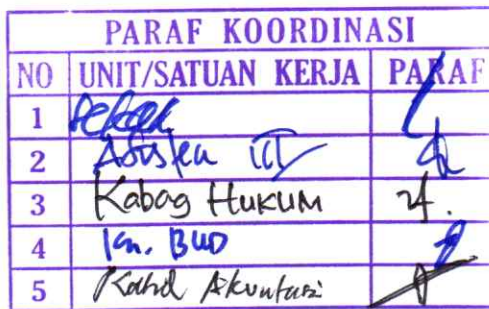 PARAF KOORDINASI
NO UNIT/SATUAN KERJA PARAF
1
2 Asisten III
3 Kabag HUKUM
4 Kn. BUD
5 Kabid Akuntansi